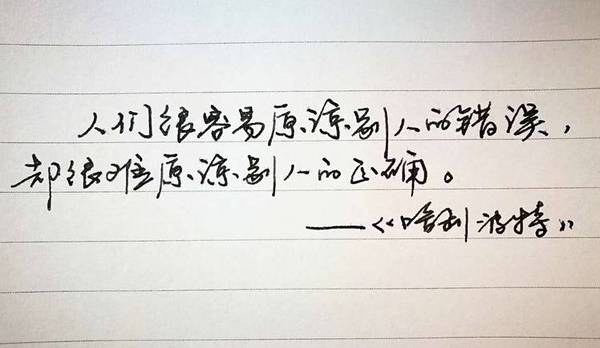 人们很容易原谅别人的错误，
却很难原谅别人的正确。
——《哈利波特》